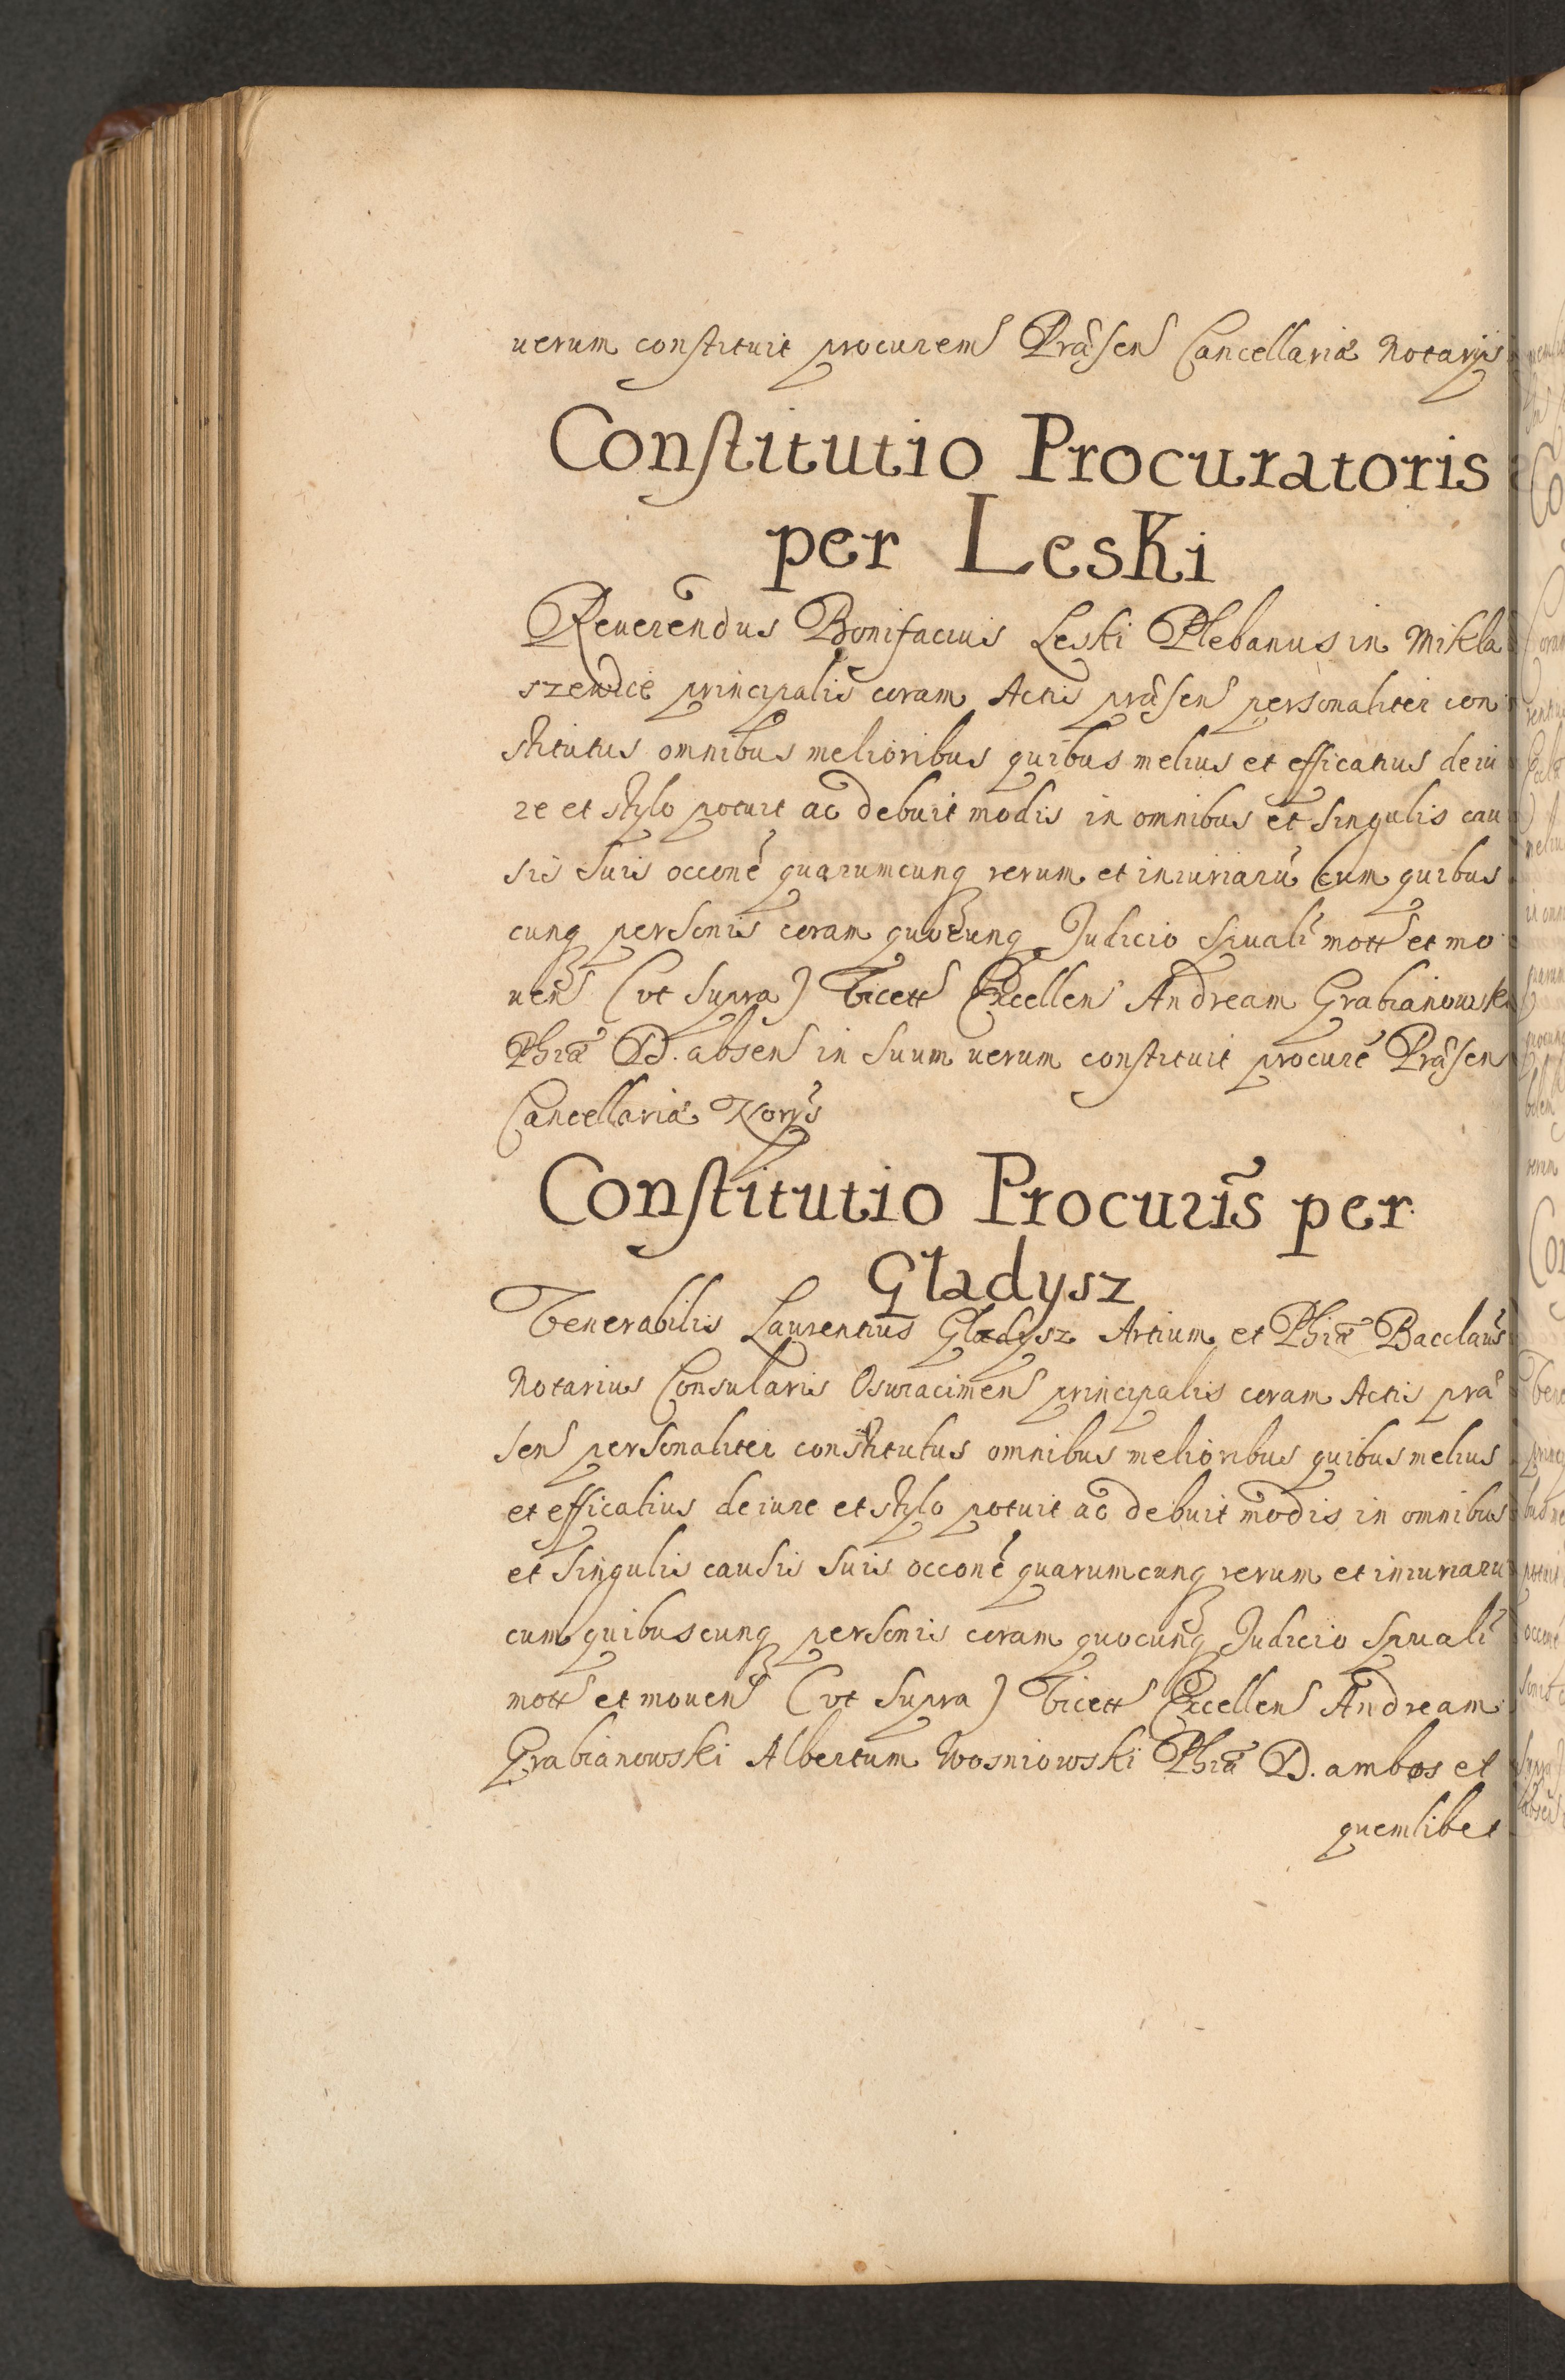 uerum constituit procurem Præsen Cancellariæ Notarijs
Constitutio Procuratoris
per Leski
Reuerendus Bonifacius Leski Plebanus in Mikla
szewice principalis coram Actis præsen personaliter con
stitutus omnibus melioribus quibus melius et efficatius de iu
re et stylo potuit ac debuit modis in omnibus et singulis cau
sis suis occone quarumcunq rerum et iniuriarū cum quibus
cunq personis coram quocunq Judicio spuali mott et mo
uen (ut supra) Vicett Excellen Andream Grabianowski
Phiæ D. absen in suum uerum constituit procure Præsen
Cancellariæ Norijs
Constitutio Procuris per
Gładysz
Venerabilis Laurentius Gladysz Artium et Phiæ Bacclaus
Notarius Consularis Oswiacimen principalis coram Actis præ
sen personaliter constitutus omnibus melioribus quibus melius
et efficatius de iure et stylo potuit ac debuit modis in omnibus
et singulis causis suis occone quarumcunq rerum et iniuriaru
cum quibuscunq personis coram quocunq Judicio spuali
mott et mouen (ut supra) Vicett Excellen Andream
Grabianowski Albertum Wosniowski Phiæ D. ambos et
quemlibet